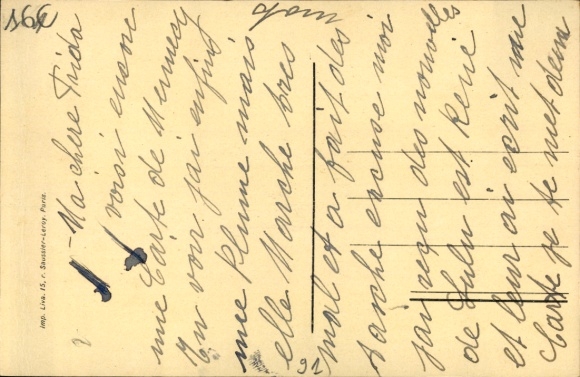 166
Ma chère Frida
voici encore
une Carte de Mennecy
Tu vois j'ai enfin
une Plume mais
elle Marche très
mal et a fait des
tache excuse moi
j'ai reçu des nouvelles
de Lulu est René
et leur ai ecrit une
Carte je te met deux
91
Imp. Liva. 15, r. Saussier-Leroy. Paris.